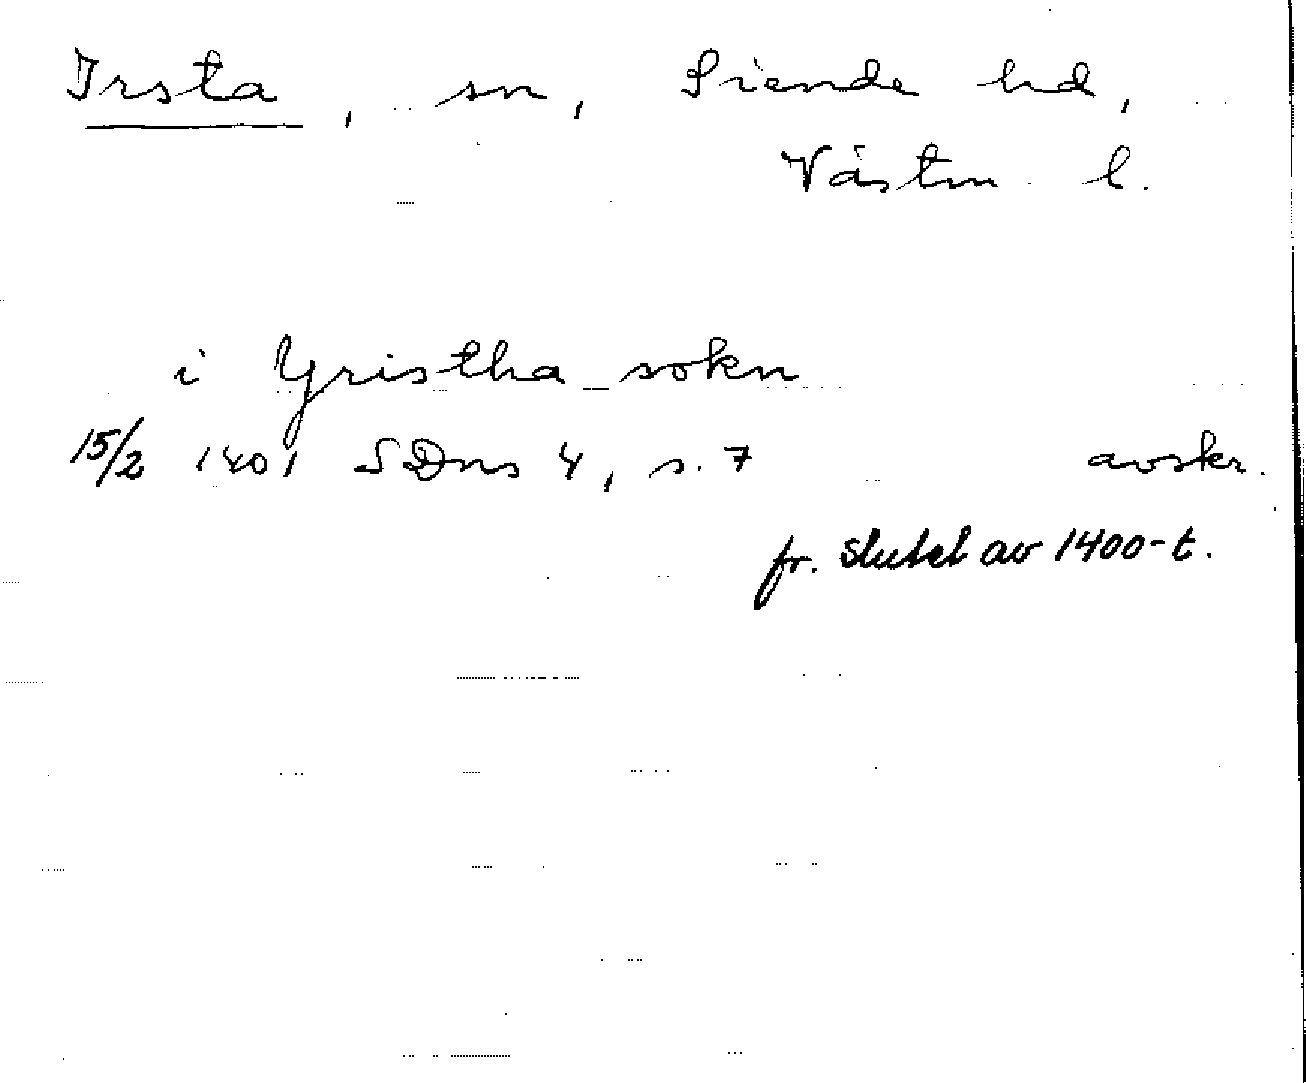 Irsta, sn, Siende hd,
Västm. l.
i Yristha sokn
15/2 1401 SDns 4, s. 7 avskr.
fr. slutet av 1400-t.